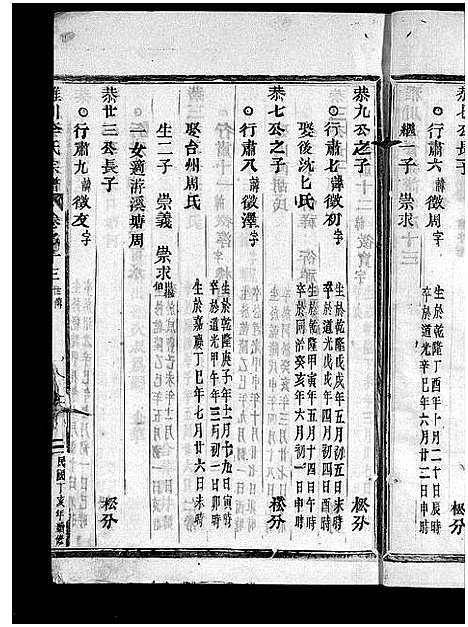 恭七公之子
行肅六諱徵周字
生於乾隆丁酉年十月二十日辰時
卒於道光辛巳年六月廿三日申時
繼一子 崇求
松分
恭九公之子
行肅七諱徵初字
生於乾隆甲寅年五月十四日午時
卒於道光戊戌年五月初五日未時
娶後沈氏
卒於同治癸亥年六月初三日時
松分
恭七公之子
行肅八諱徵澤字
生於乾隆庚子年十二月十九日寅時
卒於道光甲午年三月初一日卯時
娶台州周氏
生於嘉慶丁巳年七月廿六日未時
生二子 崇義 崇求
一女適游溪塘周
松分
恭廿三公長子
行肅九諱徵友字
松分
李氏宗譜
民國丁亥年續修